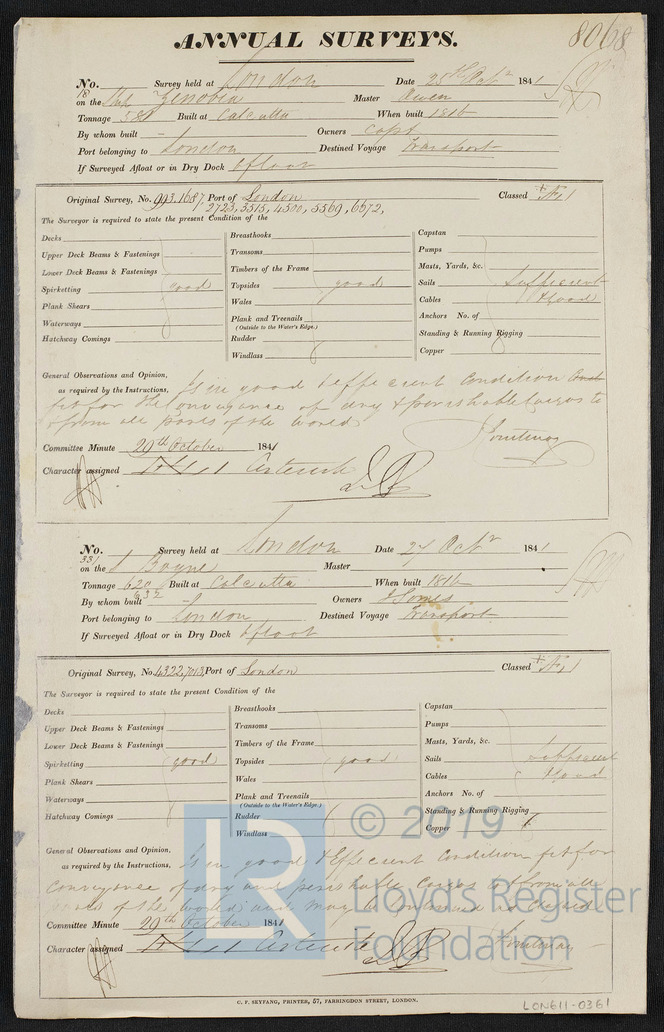 8068
ANNUAL SURVEYS.
No. Survey held at London Date 25th Octr 1841
on the Ship Zenobia Master Owen
Tonnage Built at Calcutta When built 1816
By whom built - Owners Capt
Port belonging to London Destined Voyage Transport
If Surveyed Afloat or in Dry Dock afloat
Original Survey, No. 993.1687 Port of London Classed + A 1
2723, 3515, 4500, 5569, 6572,
The Surveyor is required to state the present Condition of the
Decks
Upper Deck Beams & Fastenings
Lower Deck Beams & Fastenings
Spirketting good
Plank Shears
Waterways
Hatchway Comings
Breasthooks
Transoms
Timbers of the Frame
Topsides good
Wales
Plank and Treenails
(Outside to the Water's Edge.)
Rudder
Windlass
Capstan
Pumps
Masts, Yards, &c.
Sails Sufficient
Cables & Good
Anchors No. of
Standing & Running Rigging
Copper
General Observations and Opinion, Is in good & Efficient Condition and
as required by the Instructions,
fit for the conveyance of dry & perishable Cargos to
& from all parts of the World
Committee Minute 29th October 1841
Character assigned
No. Survey held at London Date 27 Octr 1841
331
on the S Boyne Master
Tonnage 620 Built at Calcutta When built 1816
632
By whom built - Owners J Somes
Port belonging to London Destined Voyage Transport
If Surveyed Afloat or in Dry Dock afloat
Original Survey, No. 4322,7013 Port of London Classed + A 1
The Surveyor is required to state the present Condition of the
Decks
Upper Deck Beams & Fastenings
Lower Deck Beams & Fastenings
Spirketting good
Plank Shears
Waterways
Hatchway Comings
Breasthooks
Transoms
Timbers of the Frame
Topsides good
Wales
Plank and Treenails
(Outside to the Water's Edge.)
Rudder
Windlass
Capstan
Pumps
Masts, Yards, &c.
Sails Sufficient
Cables & Good
Anchors No. of
Standing & Running Rigging
Copper
© 2019
Lloyd's Register
Foundation
LR
General Observations and Opinion, Is in good & Efficient Condition fit for
as required by the Instructions.
conveyance of dry and perishable Cargos to & from all
parts of the World, and may be continued as Classed
Committee Minute 29th October 1841
Character assigned
C. F. SEYFANG, PRINTER, 57, FARRINGDON STREET, LONDON.
LON611-0361